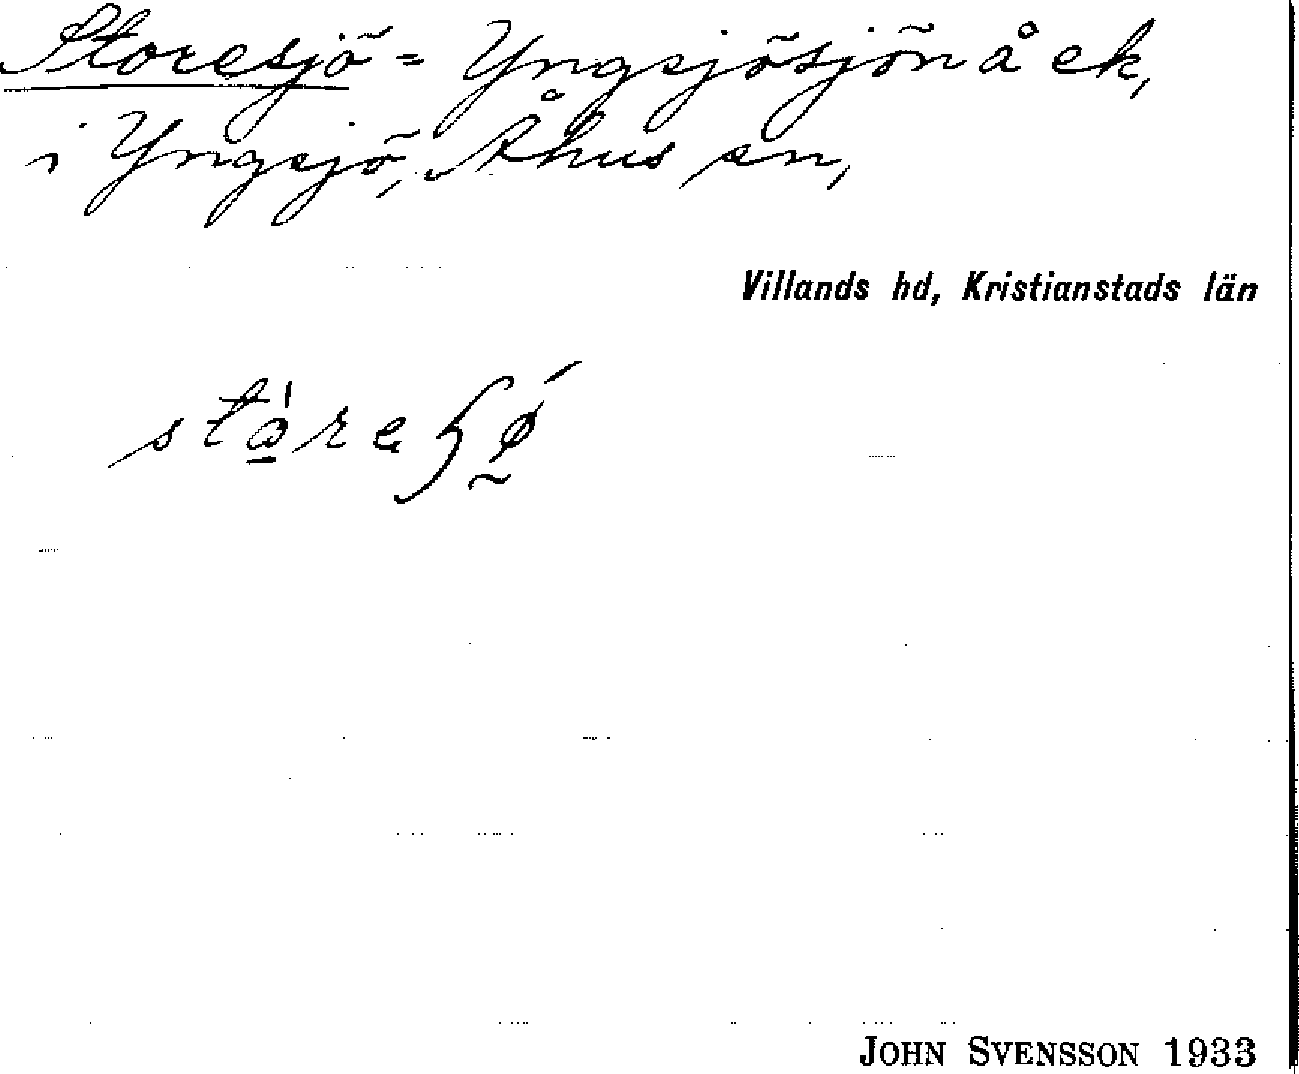 Storesjö = Yngsjösjön å ek,
i Yngsjö, Åhus sn,
Villands hd, Kristianstads län
JOHN SVENSSON 1933